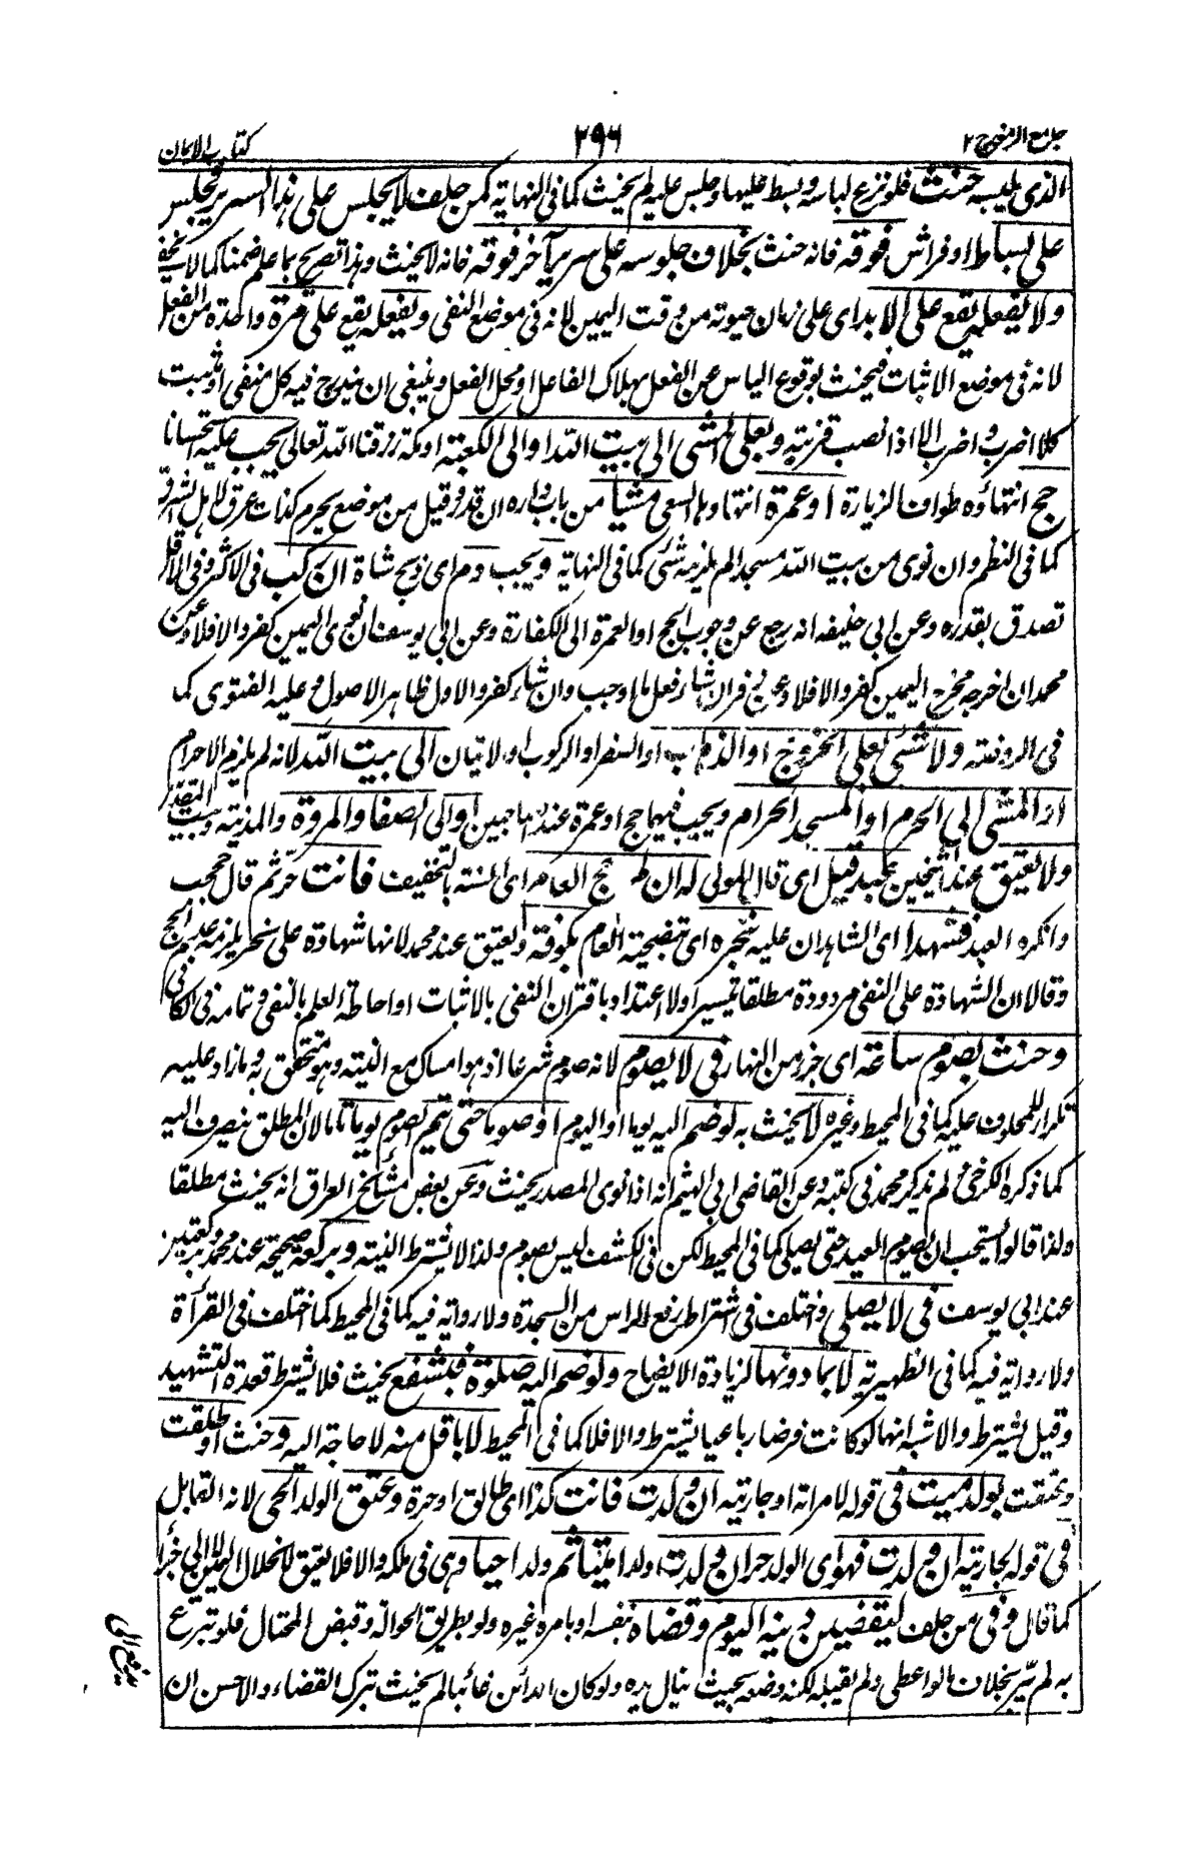 جامع الرموز ج ٢
٢٩٦
كتاب الايمان
الذى يلبسه حنث فلو نزع لباسه وبسط عليها وجلس عليه لم يحنث كما فى النهاية كمن حلف لا يجلس على هذا السرير فجلس
على بساط او فراش فوقه فانه حنث بخلاف جلوسه على سرير آخر فوقه فانه لا يحنث وهذا تصريح بما علم ضمنا كما لا يخفى
ولا يفعله يقع على الابد اى على زمان حيوته من وقت اليمين لانه فى موضع النفى ويفعله يقع على مرة واحدة من الفعل
لانه فى موضع الاثبات فيحنث بوقوع الياس عن الفعل بهلاك الفاعل او محل الفعل وينبغى ان يندرج فيه كل منفى او مثبت
كلا اضرب واضرب الا اذا نصب قرينة وبعلى المشى الى بيت الله او الى الكعبة او مكة رزقنا الله تعالى يجب عليه استحسانا
حج انتهاؤه طواف الزيارة او عمرة انتهاؤها السعى مشيا من باب داره ان قدر وقيل من موضع يحرم كذات عرق لاهل الشرق
كما فى النظم وان نوى من بيت الله مسجدا لم يلزمه شئ كما فى النهاية ويجب دم اى ذبح شاة ان ركب فى الاكثر وفى الاقل
تصدق بقدره وعن ابى حنيفه انه رجع عن وجوب الحج او العمرة الى الكفارة وعن ابى يوسف ان نوى اليمين كفر والا فلا وعن
محمد ان اخرجه مخرج اليمين كفر والا فلا وعن زفر ان شاء فعل ما اوجب وان شاء كفر والاول ظاهر الاصول وعليه الفتوى كما
فى الروضة ولا شئ بعلى الخروج او الذهاب او السفر او الركوب او الاتيان الى بيت الله لانه لم يلزم الاحرام
او المشى الى الحرم او المسجد الحرام ويجب فيهما حج او عمرة عندهما جميعا او الى الصفا والمروة والمدينة وبيت المقدس
ولا يعتق عند الشيخين عبد قيل اى قال المولى له ان لم احج العام اى السنة بالتخفيف فانت حر ثم قال حججت
وانكره العبد فشهدا اى الشاهدان عليه بنحره اى تضحيته العام بكوفة ويعتق عند محمد لانها شهادة على نحر يلزمه عدم الحج
وقالا ان الشهادة على النفى مردودة مطلقا تيسيرا ولا اعتداد باقتران النفى بالاثبات او احاطة العلم بالنفى وتمامه فى الكافى
وحنث بصوم ساعة اى جزء من النهار فى لا يصوم لانه صوم شرعا اذ هو امساك مع النية وهو متحقق به وما زاد عليه
تكرار للمحلوف عليه كما فى المحيط وغيره لا يحنث به لو ضم اليه يوما او اليوم او صوما حتى يتم بصوم يوما تاما لان المطلق ينصرف اليه
كما ذكره الكرخى لم يذكر محمد فى كتبه وعن القاضى ابى الهيثم انه اذا نوى المصدر يحنث وعن بعض مشائخ العراق انه يحنث مطلقا
ولذا قالوا يستحب ان يصوم العيد حتى يصلى كما فى المحيط لكن فى الكشف ليس بصوم ولذا لا يشترط النية وبركعة صحيحة عند محمد وبركعتين
عند ابى يوسف فى لا يصلى واختلف فى اشتراط رفع الراس من السجدة ولا رواية فيه كما فى المحيط كما اختلف فى القرأة
ولا رواية فيه كما فى الظهيرية لا بما دونها لزيادة الايضاح ولو ضم اليه صلوة فبشفع يحنث فلا يشترط قعدة التشهد
وقيل يشترط والاشبه انها لو كانت فرضا رباعيا يشترط والا فلا كما فى المحيط لا باقل منه لا حاجة اليه وحنث او طلقت
وعتقت بولد ميت فى قوله لامراته او جاريته ان ولدت فانت كذا اى طالق او حرة وعتق الولد الحى لانه القابل
فى قوله لجاريته ان ولدت فهو اى الولد حر ان ولدت اولدا ميتا ثم ولدا حيا وهى فى ملكه والا فلا يعتق لانحلال اليمين لا الى جزاء
كما قال وفى من حلف ليقضين دينه اليوم وقضاه بنفسه او بامره غيره ولو بطريق الحوالة وقبض المحتال فلو تبرع
به لم يبر بخلاف ما لو اعطى ولم يقبله لكنه وضعه بحيث ينال يده ولو كان الدائن غائبا لم يحنث بترك القضاء والاحسن ان